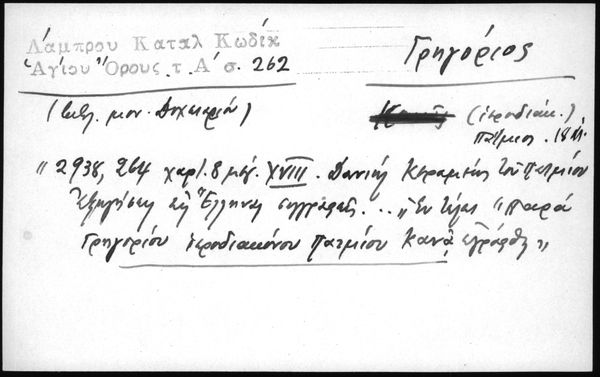 Λάμπρου Καταλ Κωδίκ
Ἁγίου Ὄρους τ. Α΄ σ. 262
Γρηγόριος
(βιβλ. μον. Δοχειαρίου)
(ἱεροδιάκ.)
Πάτμιος. 18 αἰ.
" 2938, 264 χαρτ. 8 μεγ. XVIII. Δανιὴλ Κεραμέως τοῦ Πατμίου
Ἐξηγήσεις εἰς Ἕλληνας συγγραφεῖς... "Ἐν τέλει "παρὰ
Γρηγορίου ἱεροδιακόνου Πατμίου Κανᾶ ἐγράφθη"